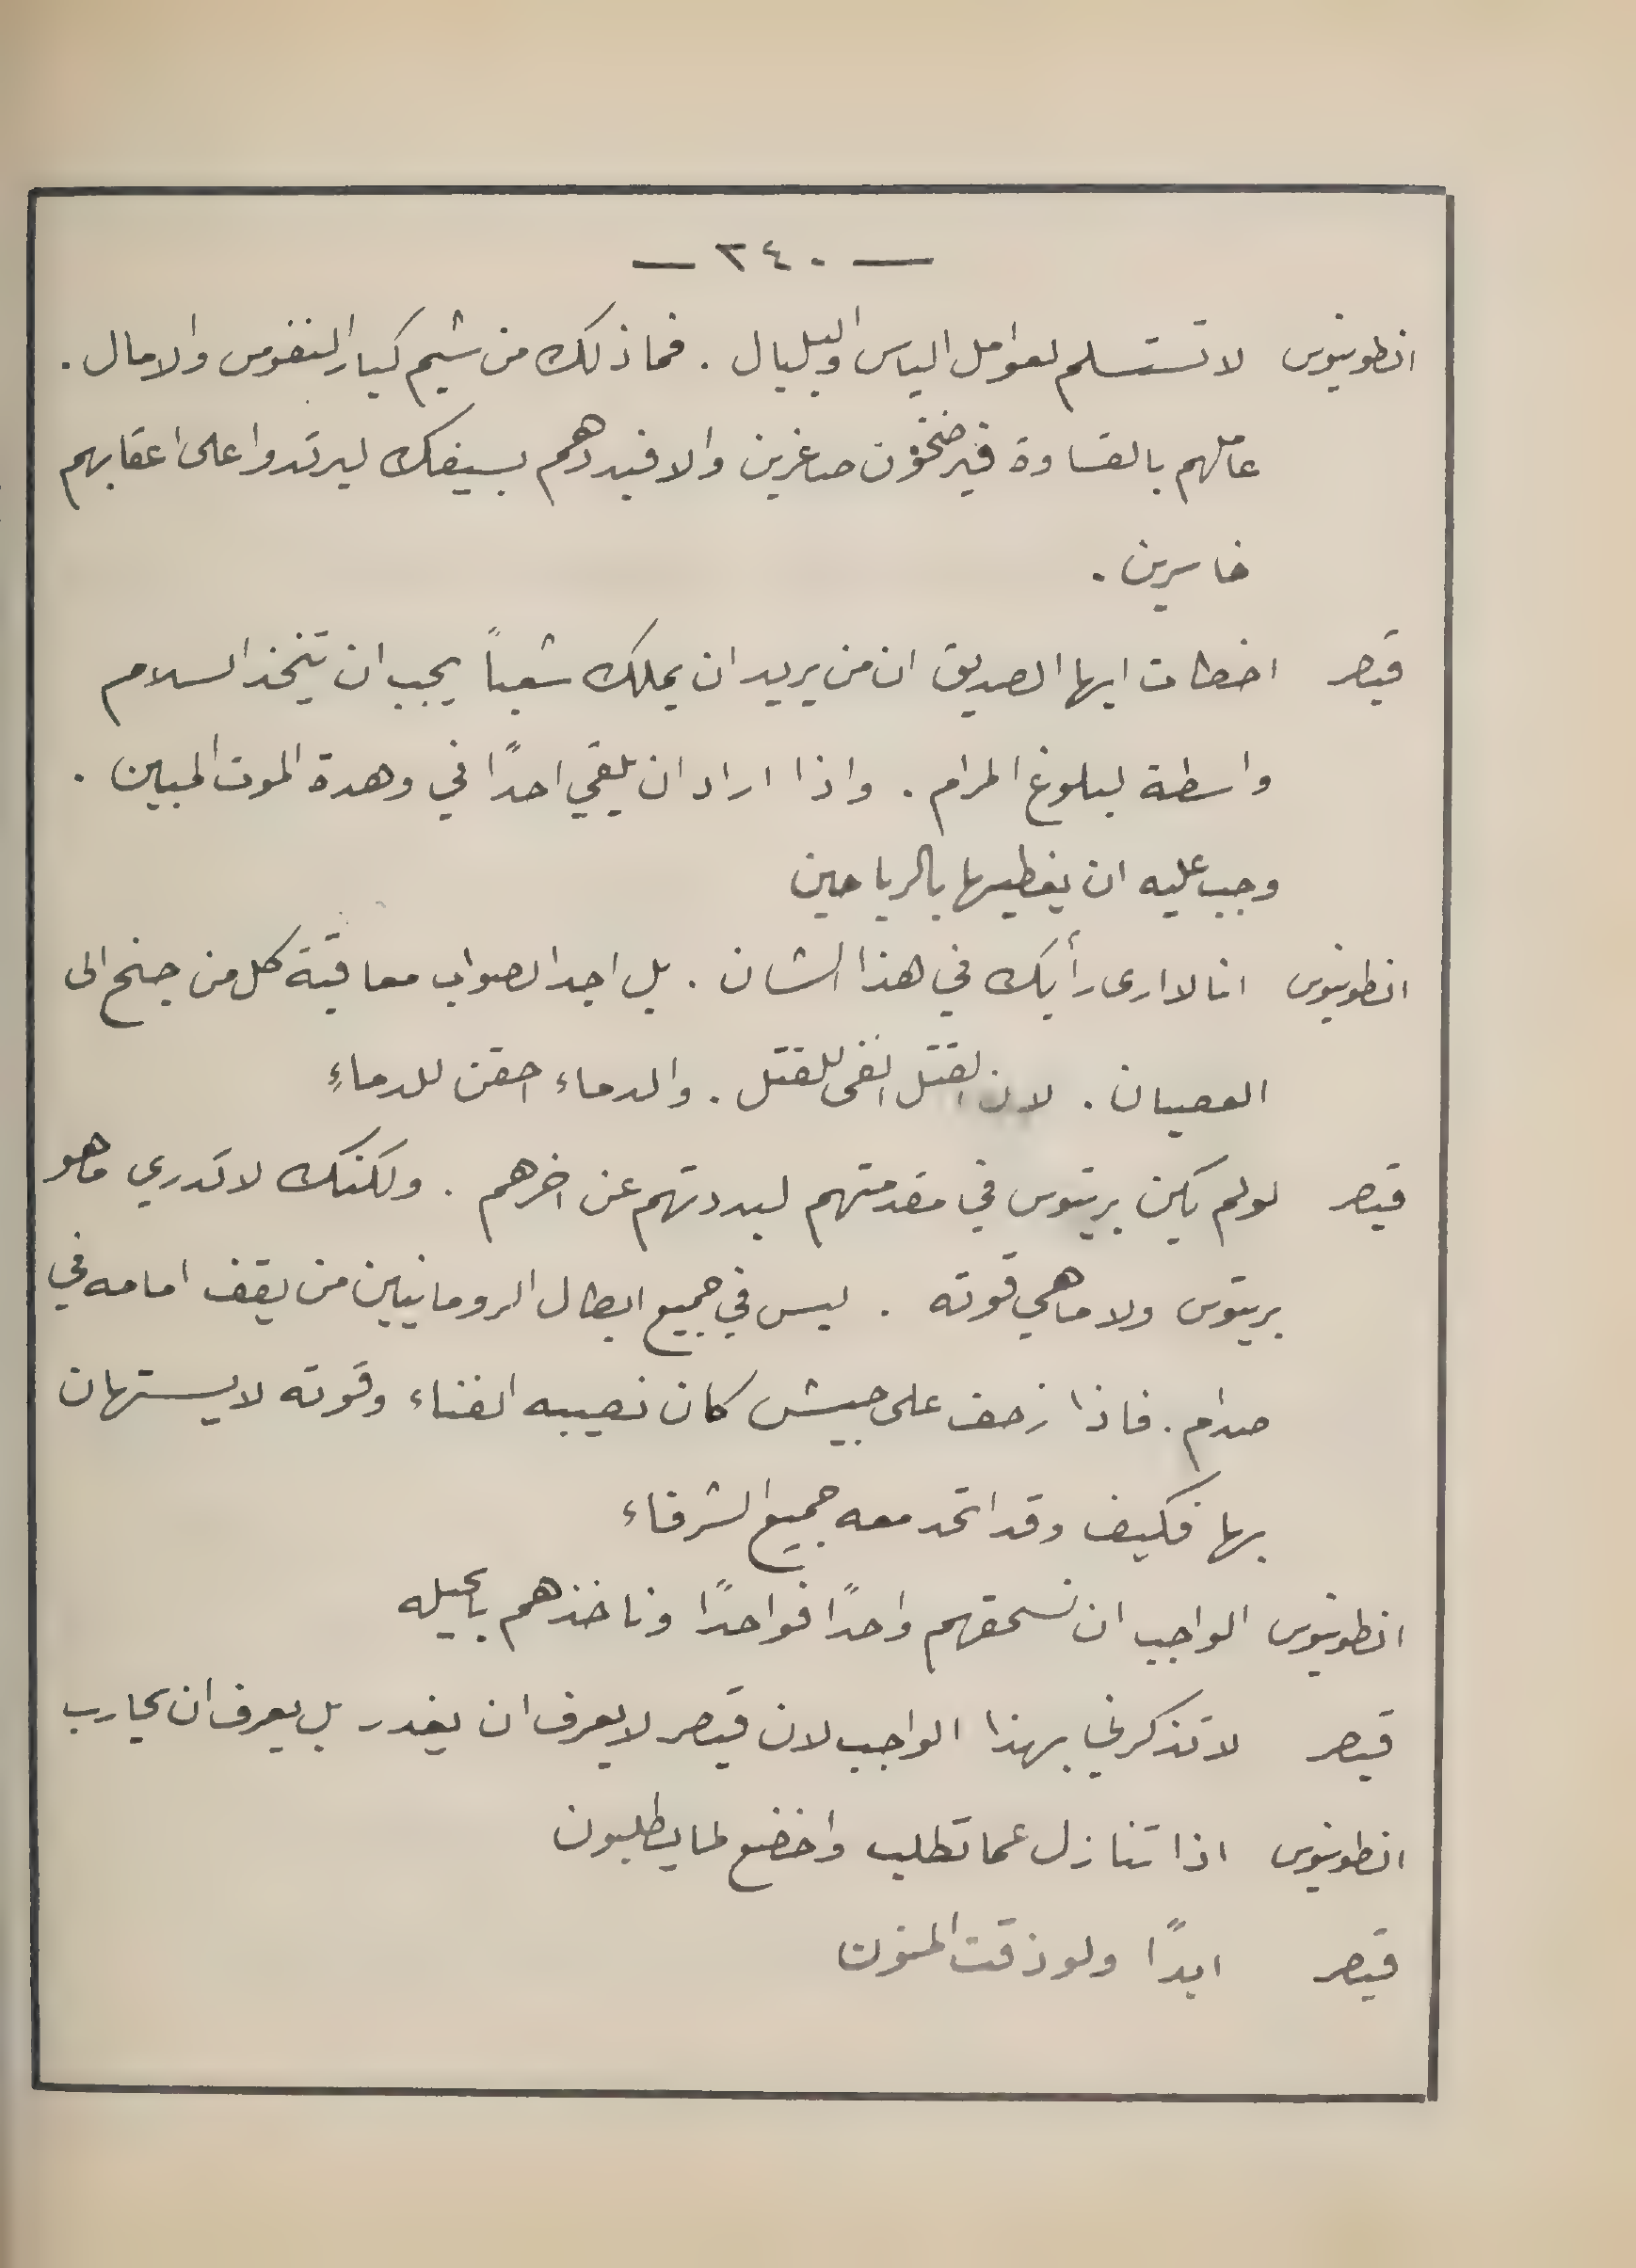 — ٣٤٠ —
انطونيوس لا تستسلم لعوامل الياس والبلبال . فما ذلك من شيم كبار النفوس والامال .
عاملهم بالقساوة فيرضخون صاغرين والا فبددهم بسيفك ليرتدوا على اعقابهم
خاسرين .
قيصر اخطات ايها الصديق ان من يريد ان يملك شعباً يجب ان يتخذ السلام
واسطة لبلوغ المرام . واذا اراد ان يلقي احدًا في وهدة الموت المبين .
وجب عليه ان يغطيها بالرياحين
انطونيوس انا لا ارى رأيك في هذا الشان . بل اجد الصواب معاقبة كل من جنح الى
العصيان . لان القتل انفى للقتل . والدماء احقن للدماءِ
قيصر لو لم يكن بريتوس في مقدمتهم لبددتهم عن اخرهم . ولكنك لا تدري ما هو
بريتوس ولا ما هي قوته . ليس في جميع ابطال الرومانيين من يقف امامه في
صدام . فاذا زحف على جيش كان نصيبه الفناء وقوته لا يستهان
بها فكيف وقد اتحد معه جميع الشرفاء
انطونيوس الواجب ان نسحقهم واحدًا فواحدًا وناخذهم بالحيله
قيصر لا تذكرني بهذا الواجب لان قيصر لا يعرف ان يغدر بل يعرف ان يحارب
انطونيوس اذا تنازل عما تطلب واخضع لما يطلبون
قيصر ابدًا ولو ذقت المنون